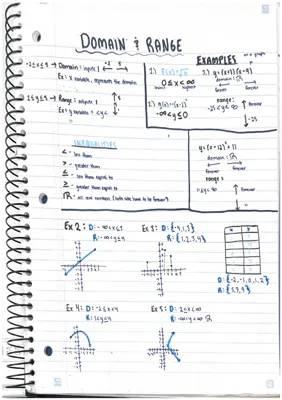 DOMAIN & RANGE
EXAMPLES
-2 ≤ x ≤ 5 → Domain: inputs
Ex: x variable, represents the domain
Range: outputs
Ex: y variable
1.) F(x)=√x
0 ≤ x < ∞
lowest
highest
2.) y=(x+1)(x-9)
domain: ℝ
forever
forever
range:
-25 ≤ y < ∞
forever
-25
-∞ < y ≤ 0
INEQUALITIES
< - less than
> - greater than
≤ - less than equal to
≥ - greater than equal to
ℝ - all real numbers (both side have to be forever)
domain: ℝ
forever
forever
range:
forever
Ex 2: D: -∞ < x ≤ 1
R: -∞ < y ≤ 4
Ex 3: D: {-4,1,3}
R: {1,2,3,4}
x y
D: {-2,-1,0,1,2}
Ex 4: D: -2 ≤ x < 4
R:
Ex 5: D: 2 ≤ x < ∞
R: -∞ < y < ∞ ℝ